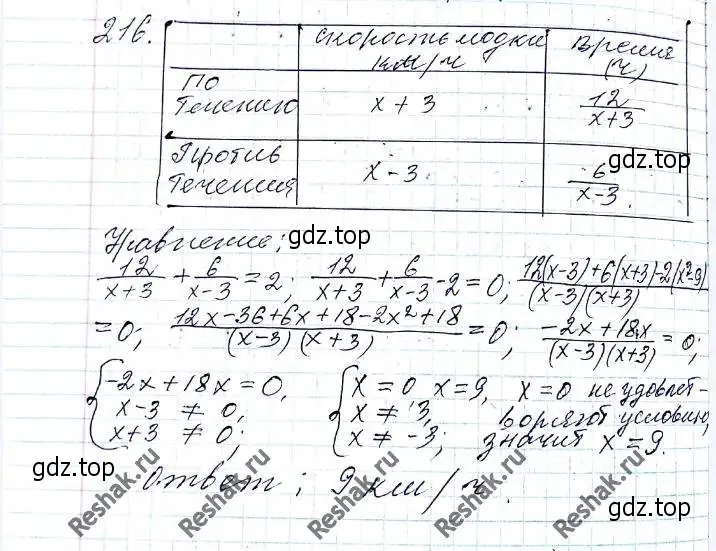 216.
Скорость лодки км/ч
Время (ч)
По течению
x + 3
12/(x+3)
Против течения
x - 3
6/(x-3).
gdz.top
Уравнение;
gdz.top
12/(x+3) + 6/(x-3) = 2; 12/(x+3) + 6/(x-3) - 2 = 0; (12(x-3)+6(x+3)-2(x²-9))/((x-3)(x+3))
= 0; (12x-36+6x+18-2x²+18)/((x-3)(x+3)) = 0; (-2x+18x)/((x-3)(x+3)) = 0;
{ -2x+18x = 0, { x = 0 x = 9, x = 0 не удовлет-
x-3 ≠ 0, x ≠ 3, воряют условию,
x+3 ≠ 0; x ≠ -3; значит x = 9.
gdz.top
Ответ; 9 км/ч.
gdz.top
Reshak.ru
Reshak.ru
Reshak.ru
Reshak.ru